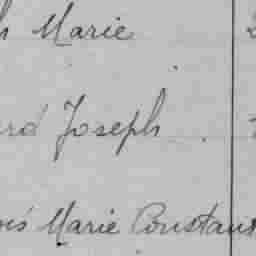 h Marie
rd Joseph
ois Marie Constant